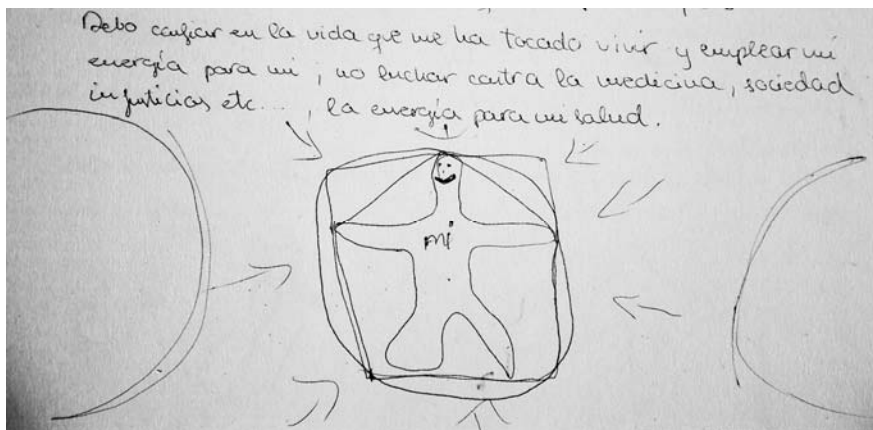 Debo confiar en la vida que me ha tocado vivir y emplear mi
energía para mi, no luchar contra la medicina, sociedad
injusticias etc...., la energía para mi salud.
mi